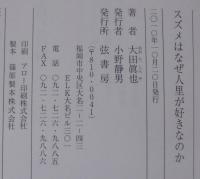 スズメはなぜ人里が好きなのか
二〇一〇年一〇月二〇日発行
著者 大田眞也
発行者 小野静男
発行所 弦書房
(〒810-0041)
福岡市中央区大名二-二-四三
ELK大名ビル三〇一
電話 〇九二・七二六・九八八五
FAX 〇九二・七二六・九八八六
印刷 アロー印刷株式会社
製本 篠原製本株式会社